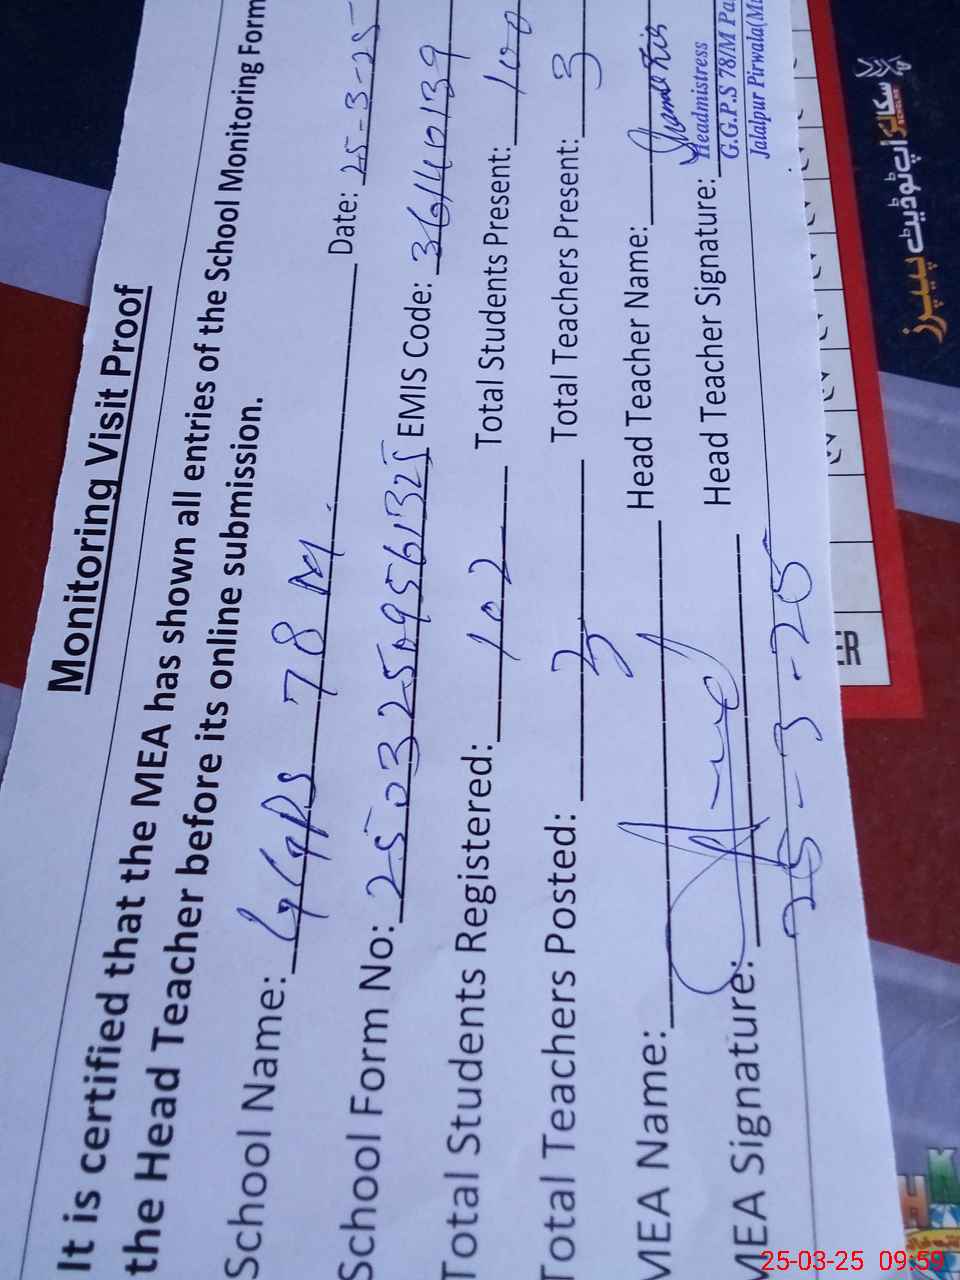 Monitoring Visit Proof
It is certified that the MEA has shown all entries of the School Monitoring Form
the Head Teacher before its online submission.
School Name: GGPS 78 M. Date: 25-3-25
School Form No: 25032509561325 EMIS Code: 36140139
Total Students Registered: 102 Total Students Present: 100
Total Teachers Posted: 3 Total Teachers Present: 3
MEA Name: Head Teacher Name:
MEA Signature: Head Teacher Signature:
25-3-25
Headmistress
G.G.P.S 78/M Pa
Jalalpur Pirwala(Mu
سکالر اپ ٹو ڈیٹ پیپرز
ER
25-03-25 09:59